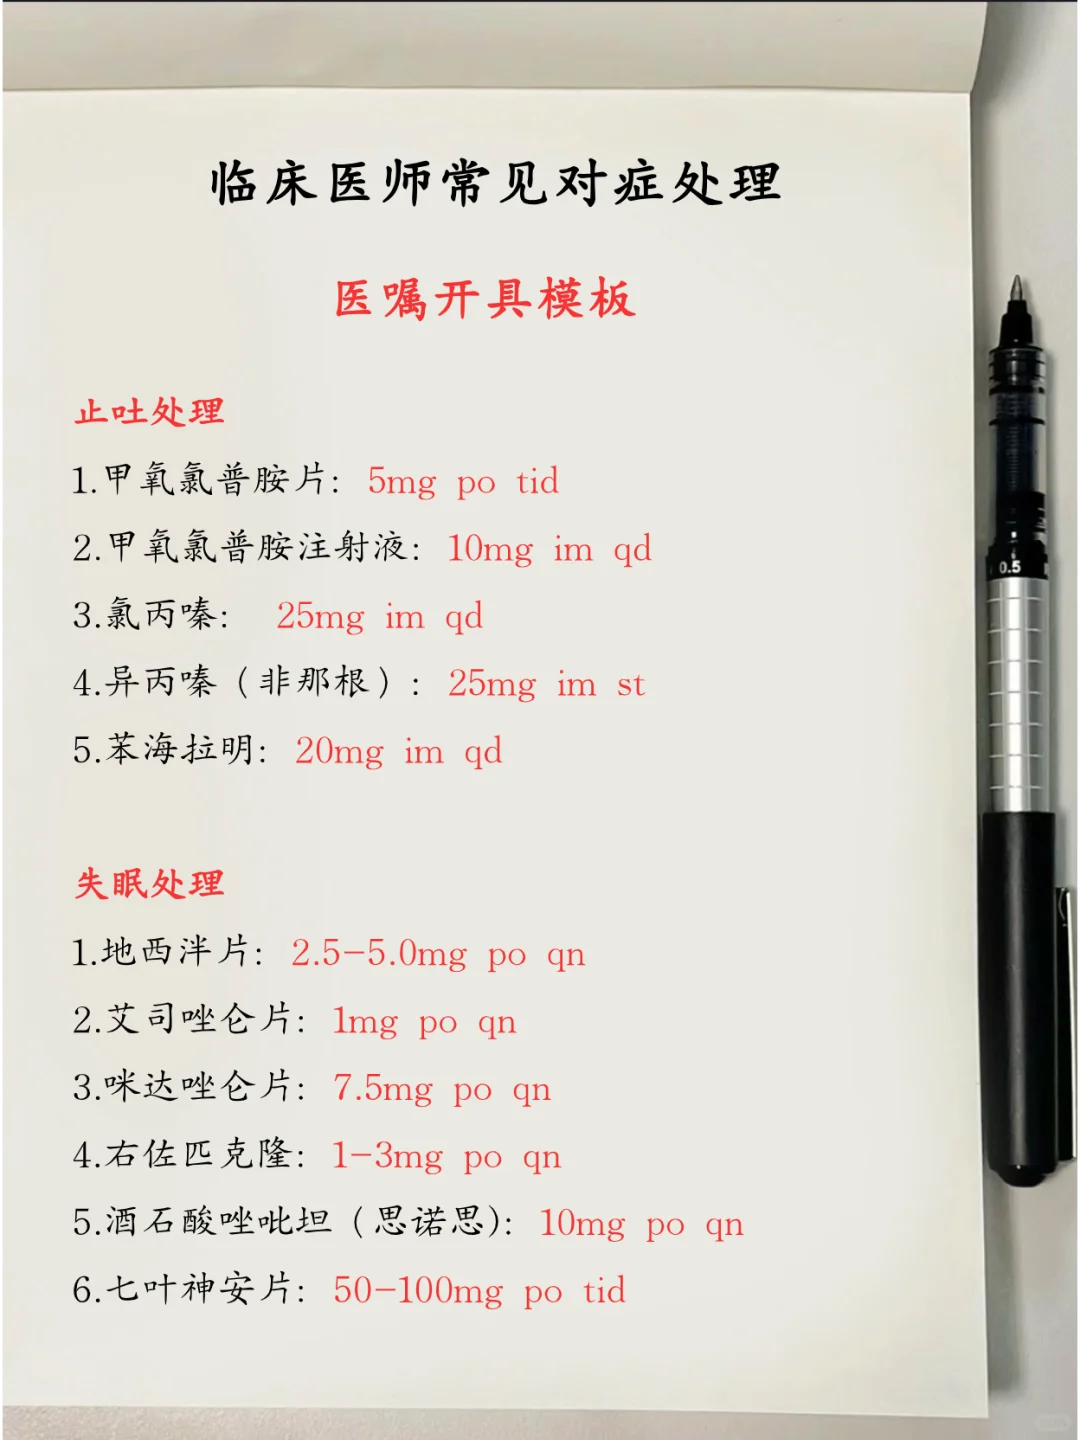 临床医师常见对症处理
医嘱开具模板
止吐处理
1.甲氧氯普胺片: 5mg po tid
2.甲氧氯普胺注射液: 10mg im qd
3.氯丙嗪: 25mg im qd
4.异丙嗪（非那根）: 25mg im st
5.苯海拉明: 20mg im qd
失眠处理
1.地西泮片: 2.5-5.0mg po qn
2.艾司唑仑片: 1mg po qn
3.咪达唑仑片: 7.5mg po qn
4.右佐匹克隆: 1-3mg po qn
5.酒石酸唑吡坦（思诺思): 10mg po qn
6.七叶神安片: 50-100mg po tid
0.5